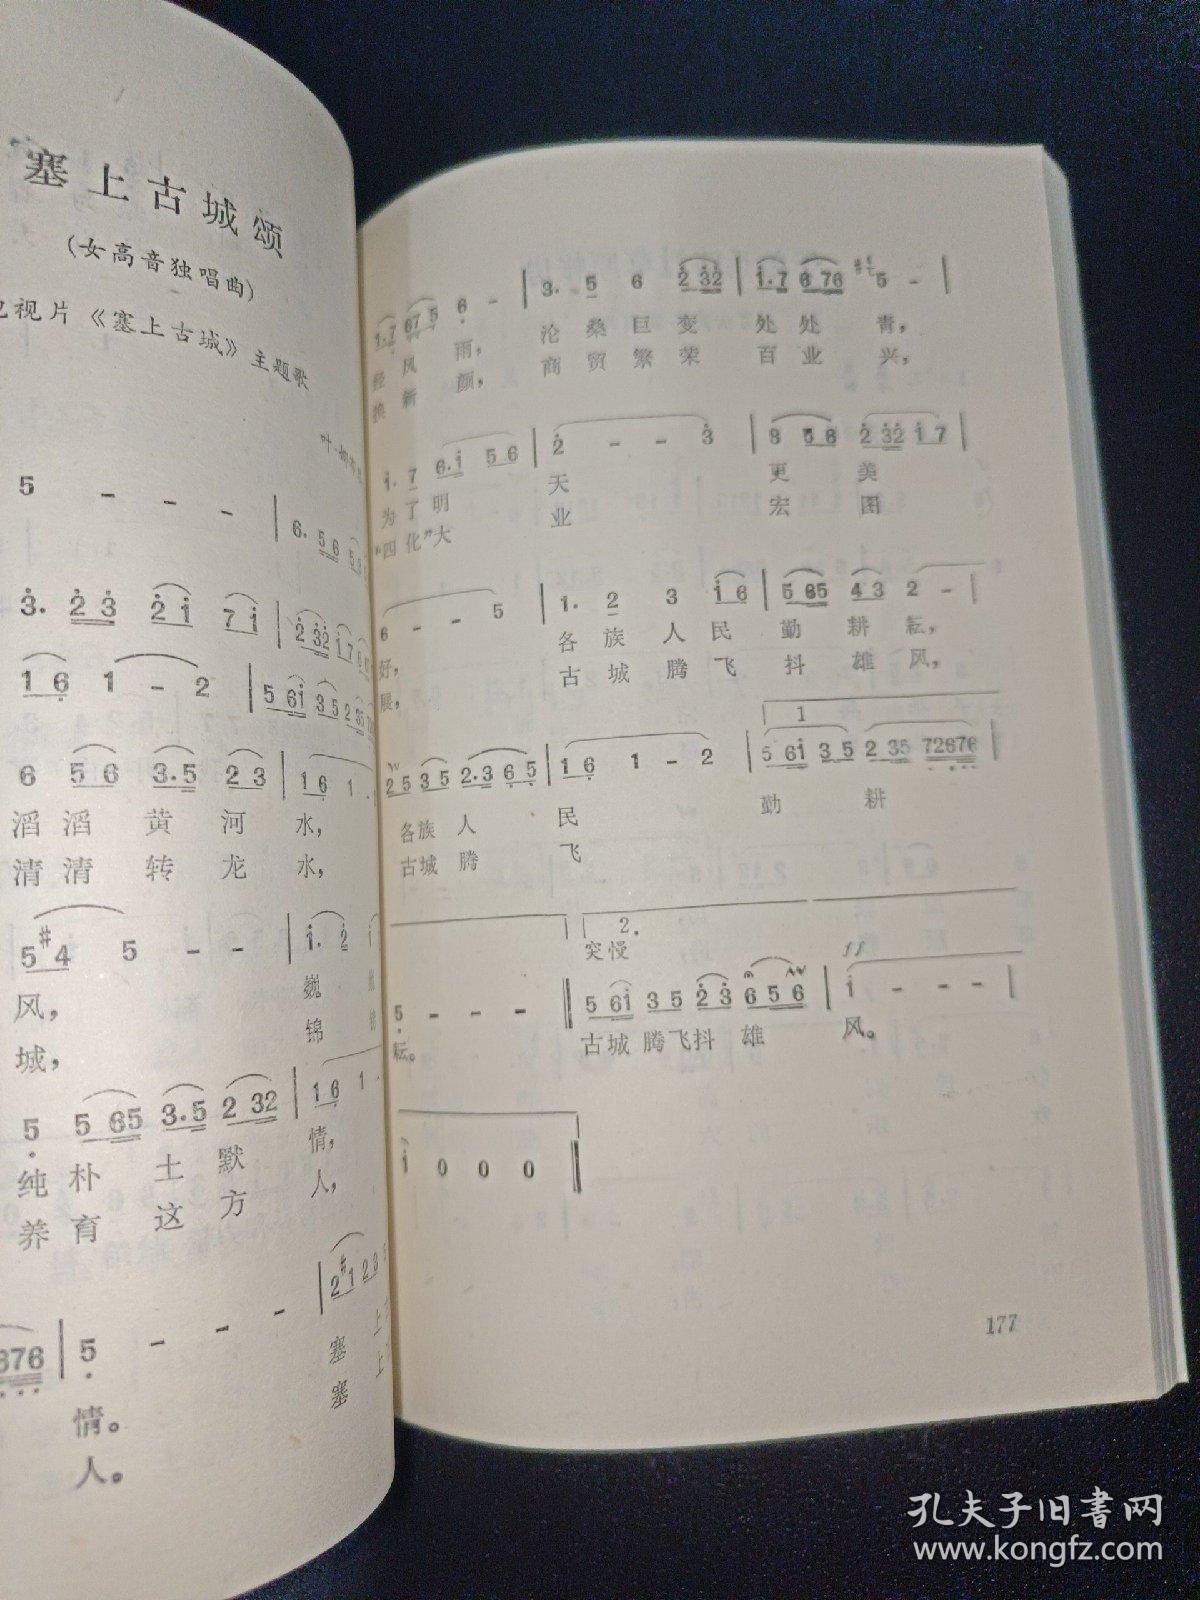 塞上古城颂
(女高音独唱曲)
视片《塞上古城》主题歌
5 - - -
3. 2 3 2 1 7 1
1 6 1 - 2
6 5 6 3.5 2 3 1 6 1
滔滔黄河水,
清清转龙水,
5 #4 5 - -
风, 巍
城, 锦
5 5 65 3.5 2 32 1 6 1
纯朴土默情,
养育这方人,
5 - - -
情。 塞上
人。 塞上
6 - 3. 5 6 2 32 1.7 6 76 5 -
经风雨, 沧桑巨变处处青,
换新颜, 商贸繁荣百业兴,
1. 7 6.1 5 6 2 - - 3 3 5 6 2 32 1 7
为了明天更美
“四化”大业宏图
6 - - 5 1. 2 3 1 6 5 65 4 3 2 -
好, 各族人民勤耕耘,
展, 古城腾飞抖雄风,
1
2 5 3 5 2.3 6 5 1 6 1 - 2 5 61 3 5 2 35 72676
各族人民勤耕
古城腾飞
2.
突慢 ff
5 - - - 5 61 3 5 2 3 6 5 6 1 - - -
耘。 古城腾飞抖雄风。
1 0 0 0
177
孔夫子旧书网
www.kongfz.com